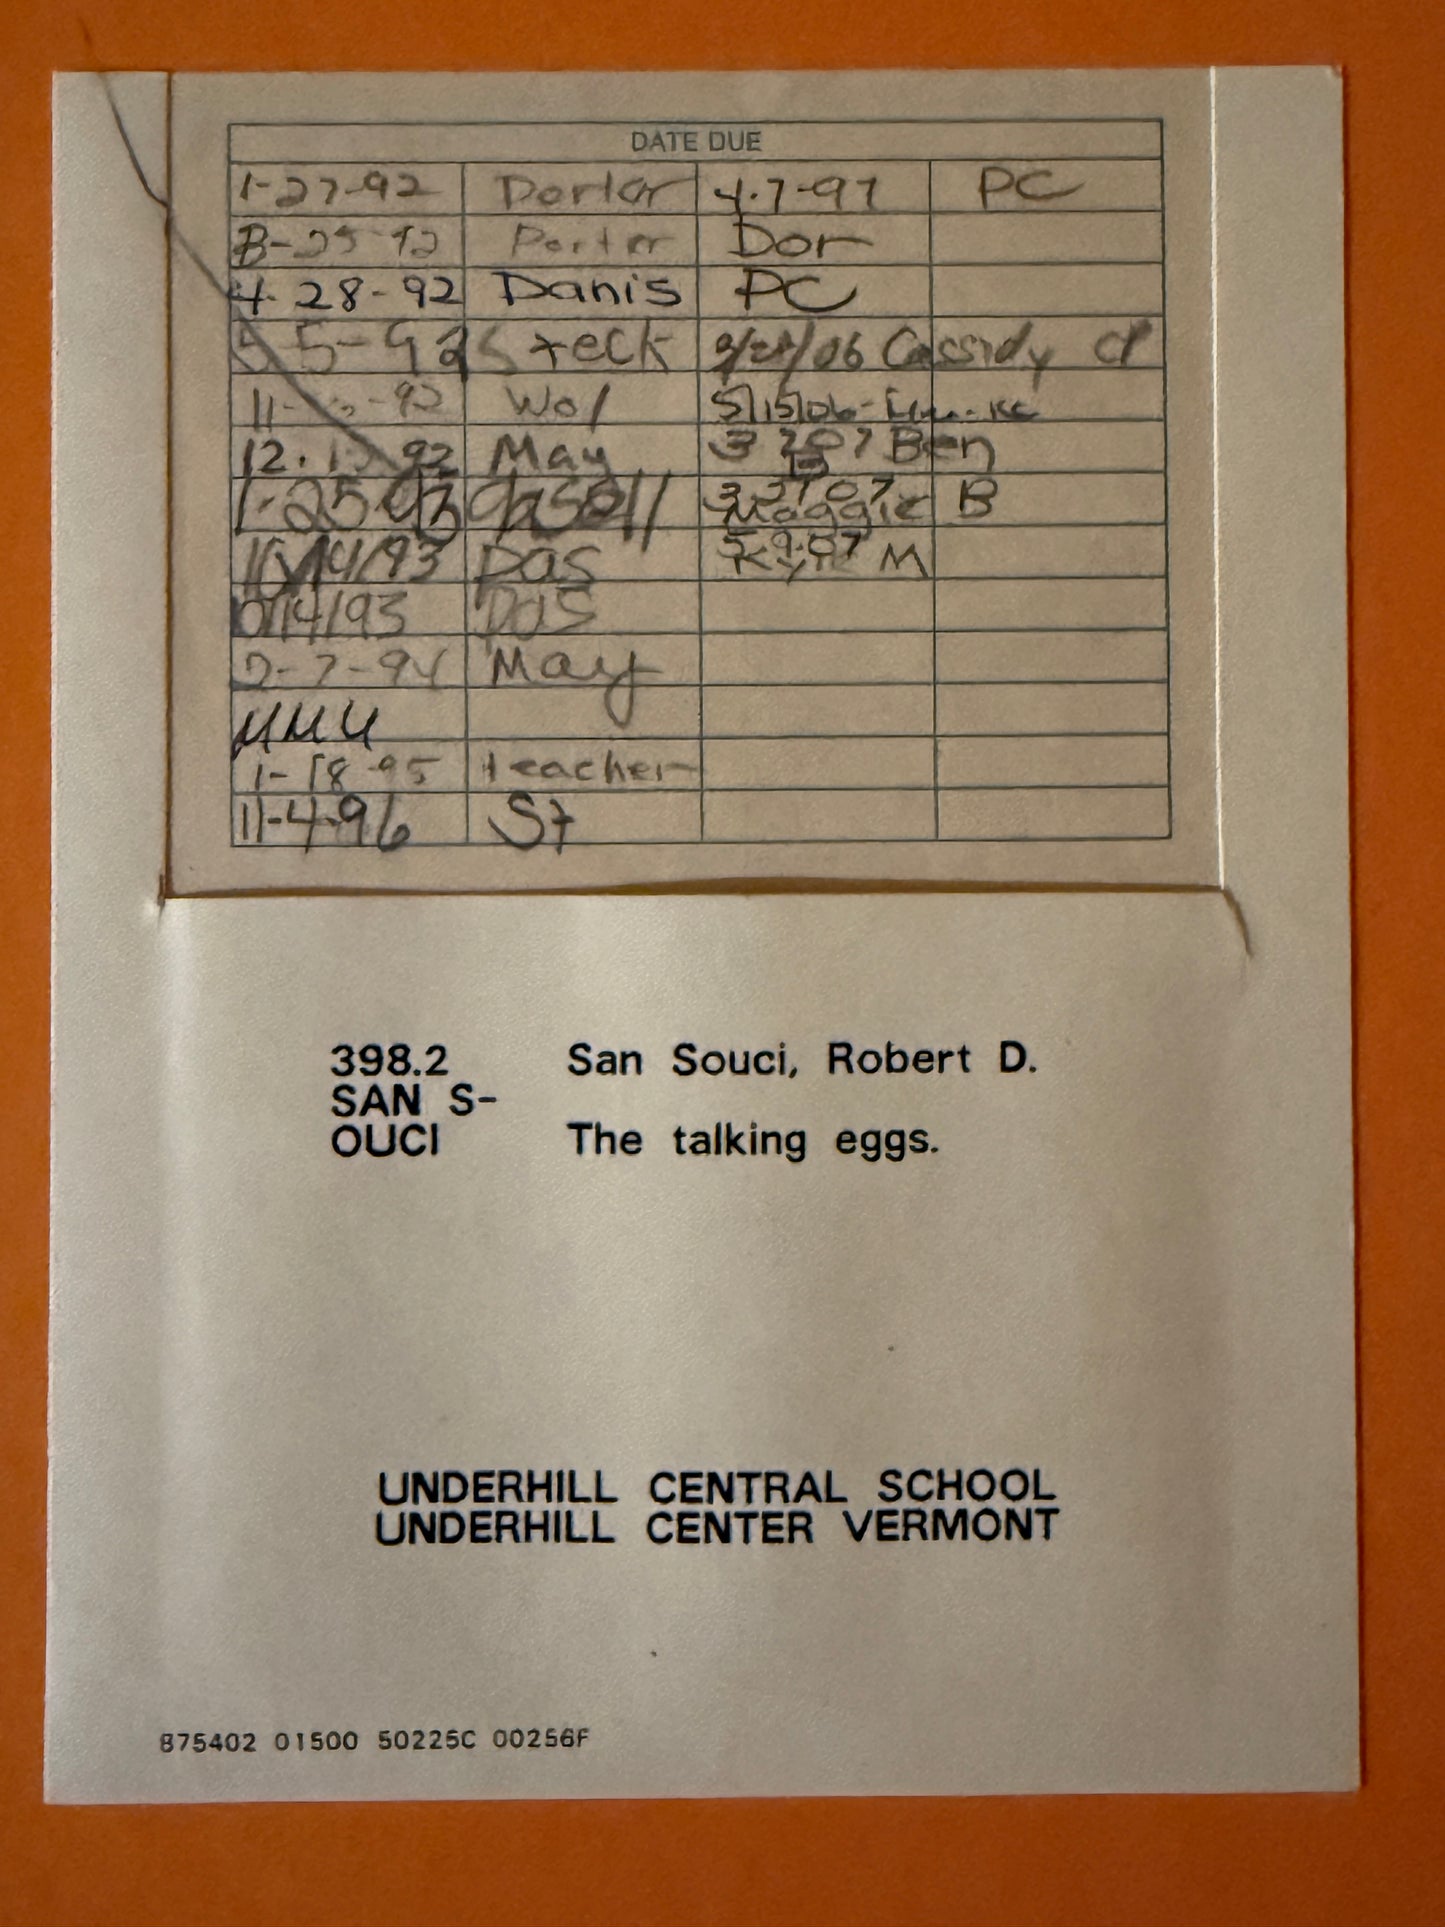 DATE DUE
1-27-92 Dorlor 4-7-97 PC
Porter Dor
4-28-92 Danis PC
5-5-92 Steck /06 Cassidy cl
11- -92 Wol 5/15/06-
12. 92 May 3 207 Ben
1-25-93 B
Maggie
10/14/93 Das 5-9-07
Kyle M
10/14/93 Das
2-7-94 May
MMU
1-18-95 teacher
11-4-96 St
398.2 San Souci, Robert D.
SAN S-
OUCI The talking eggs.
UNDERHILL CENTRAL SCHOOL
UNDERHILL CENTER VERMONT
875402 01500 50225C 00256F